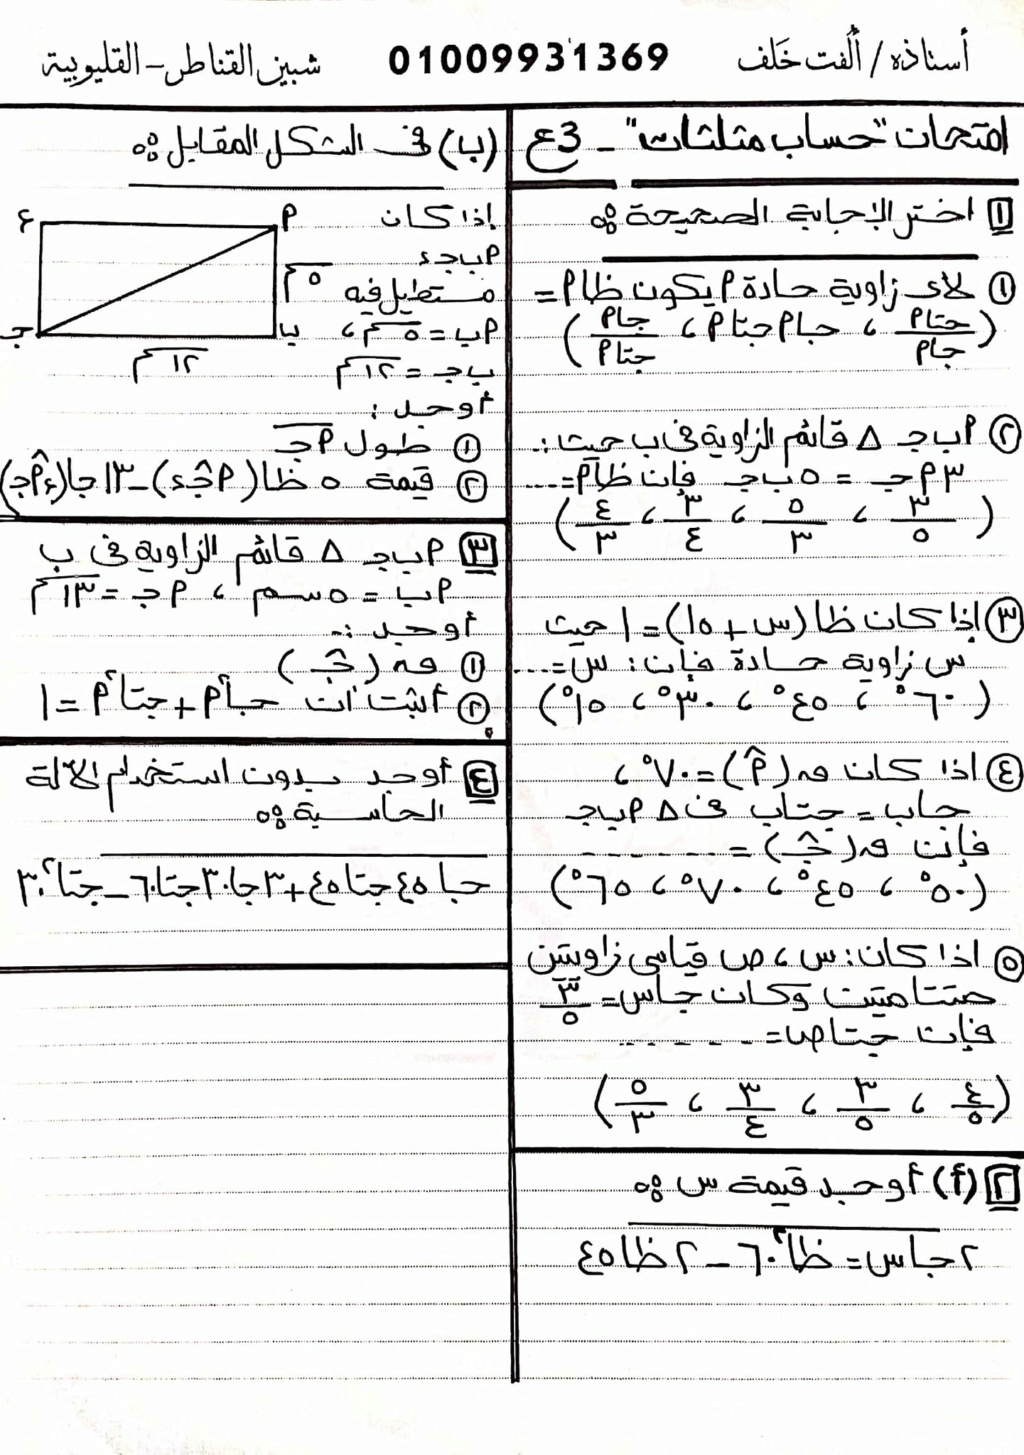 أستاذه / ألفت خلف
01009931369
شبين القناطر - القليوبية
امتحان "حساب مثلثات" - ع3
١ اختر الإجابة الصحيحة :
① لأى زاوية حادة م يكون ظا م =
(جتا م / جا م ، جا م جتا م ، جا م / جتا م)
② م ب جـ Δ قائم الزاوية فى ب حيث :
٣ م جـ = ٥ ب جـ فإن ظا م = ....
(٣/٥ ، ٥/٣ ، ٣/٤ ، ٤/٣)
③ إذا كان ظا (س + ١٥) = ١ حيث
س زاوية حادة فإن : س = ....
(٦٠° ، ٤٥° ، ٣٠° ، ١٥°)
④ اذا كان ق (م̂) = ٧٠° ،
جا ب = جتا ب فى Δ م ب جـ
فإن ق (جـ̂) = .......
(٥٠° ، ٤٥° ، ٧٠° ، ٦٥°)
⑤ اذا كان : س ، ص قياسى زاويتين
متتامتين وكان جا س = ٣/٥
فإن جتا ص = ......
(٤/٥ ، ٣/٥ ، ٣/٤ ، ٥/٣)
٢ (أ) أوجد قيمة س :
٢ جا س = ظا²٦٠ - ٢ ظا ٤٥
(ب) فى الشكل المقابل :
إذا كان
م ب جـ ء
مستطيل فيه
م ب = ٥ سم ،
ب جـ = ١٢ سم
أوجد :
① طول م جـ
② قيمة ٥ ظا (م جـ̂ ء) - ١٣ جا (ء م̂ جـ)
ء
م
٥ سم
جـ
ب
١٢ سم
٣ م ب جـ Δ قائم الزاوية فى ب
م ب = ٥ سم ، م جـ = ١٣ سم
أوجد :-
① ق (جـ̂)
② أثبت أن جا²م + جتا²م = ١
٤ أوجد بدون استخدام الآلة
الحاسبة :
جا ٤٥ جتا ٤٥ + ٣ جا ٣٠ جتا ٦٠ - جتا²٣٠